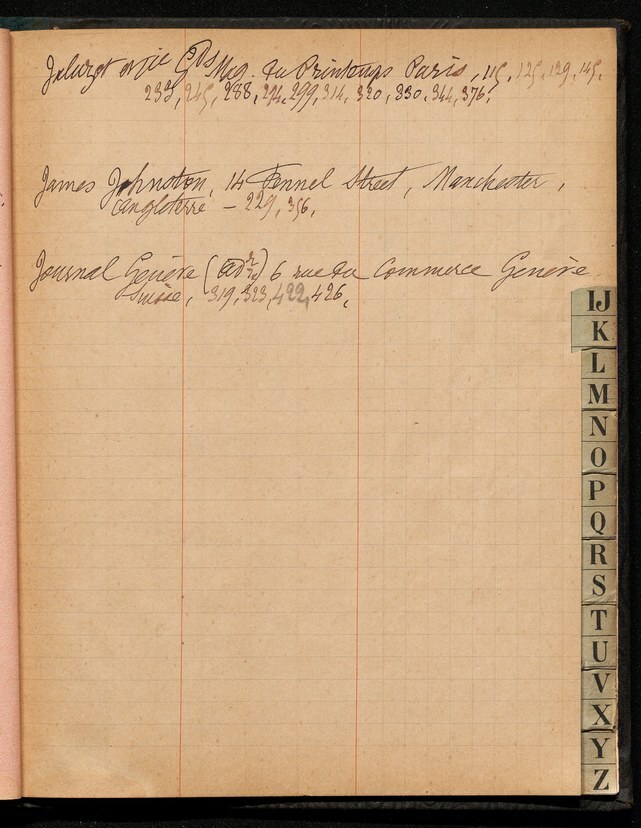 Jaluzot et Cie Gds Mag. du Printemps Paris, 115, 125, 129, 145,
233, 245, 288, 294, 299, 314, 320, 330, 344, 376,
James Johnston, 14 Fennel Street, Manchester,
Angleterre – 229, 356,
Journal Genève (adr) 6 rue du Commerce Genève
Suisse, 319, 323, 422, 426,
IJ
K
L
M
N
O
P
Q
R
S
T
U
V
X
Y
Z